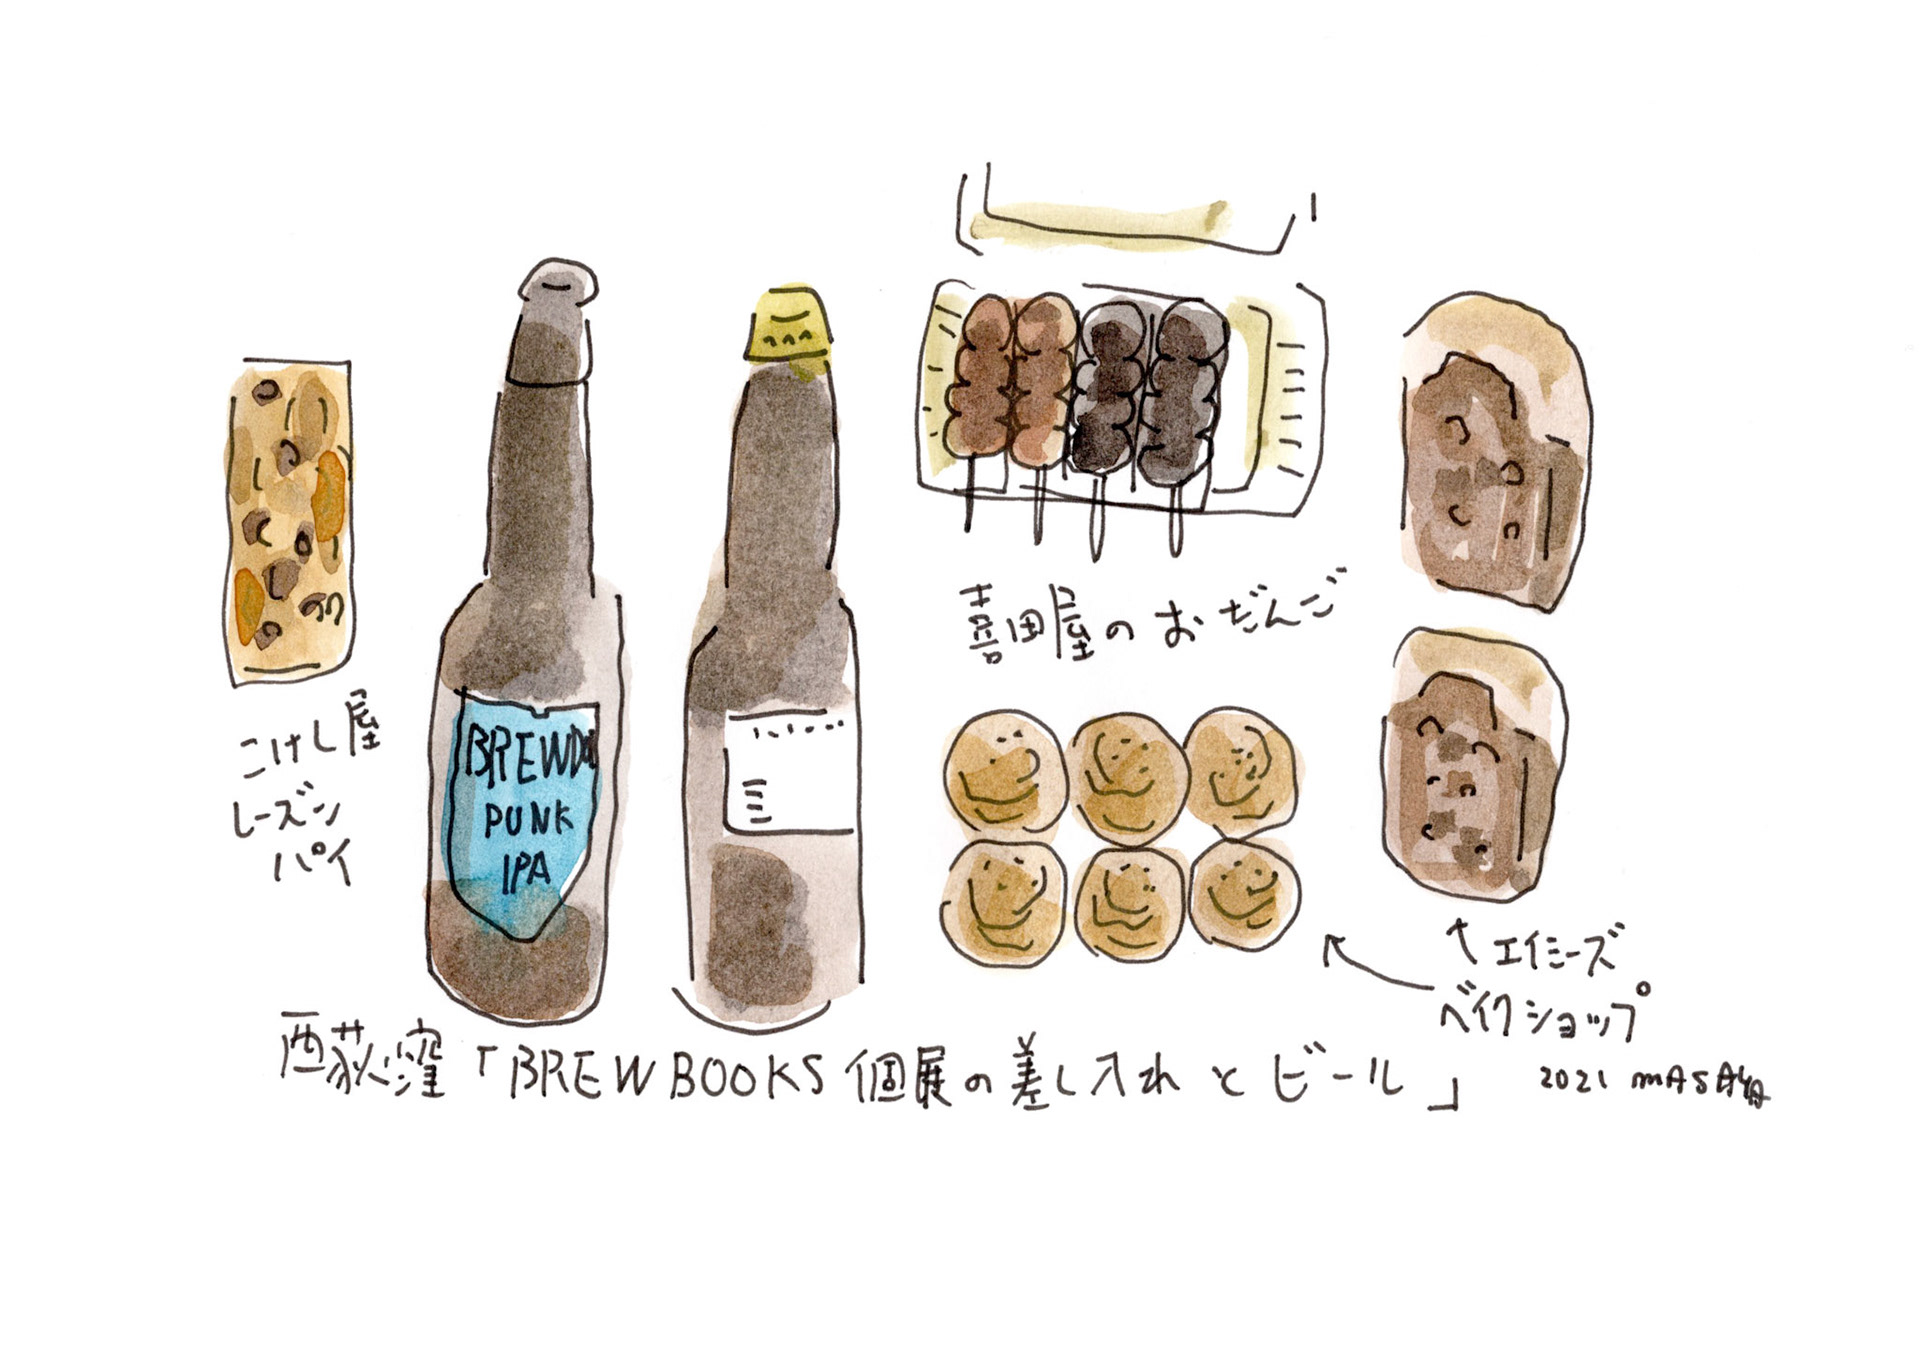 こけし屋
レーズン
パイ
BREWDO
PUNK
IPA
喜田屋のおだんご
↑エイミーズ
ベイクショップ
西荻窪「BREWBOOKS個展の差し入れとビール」
2021 MASAYA